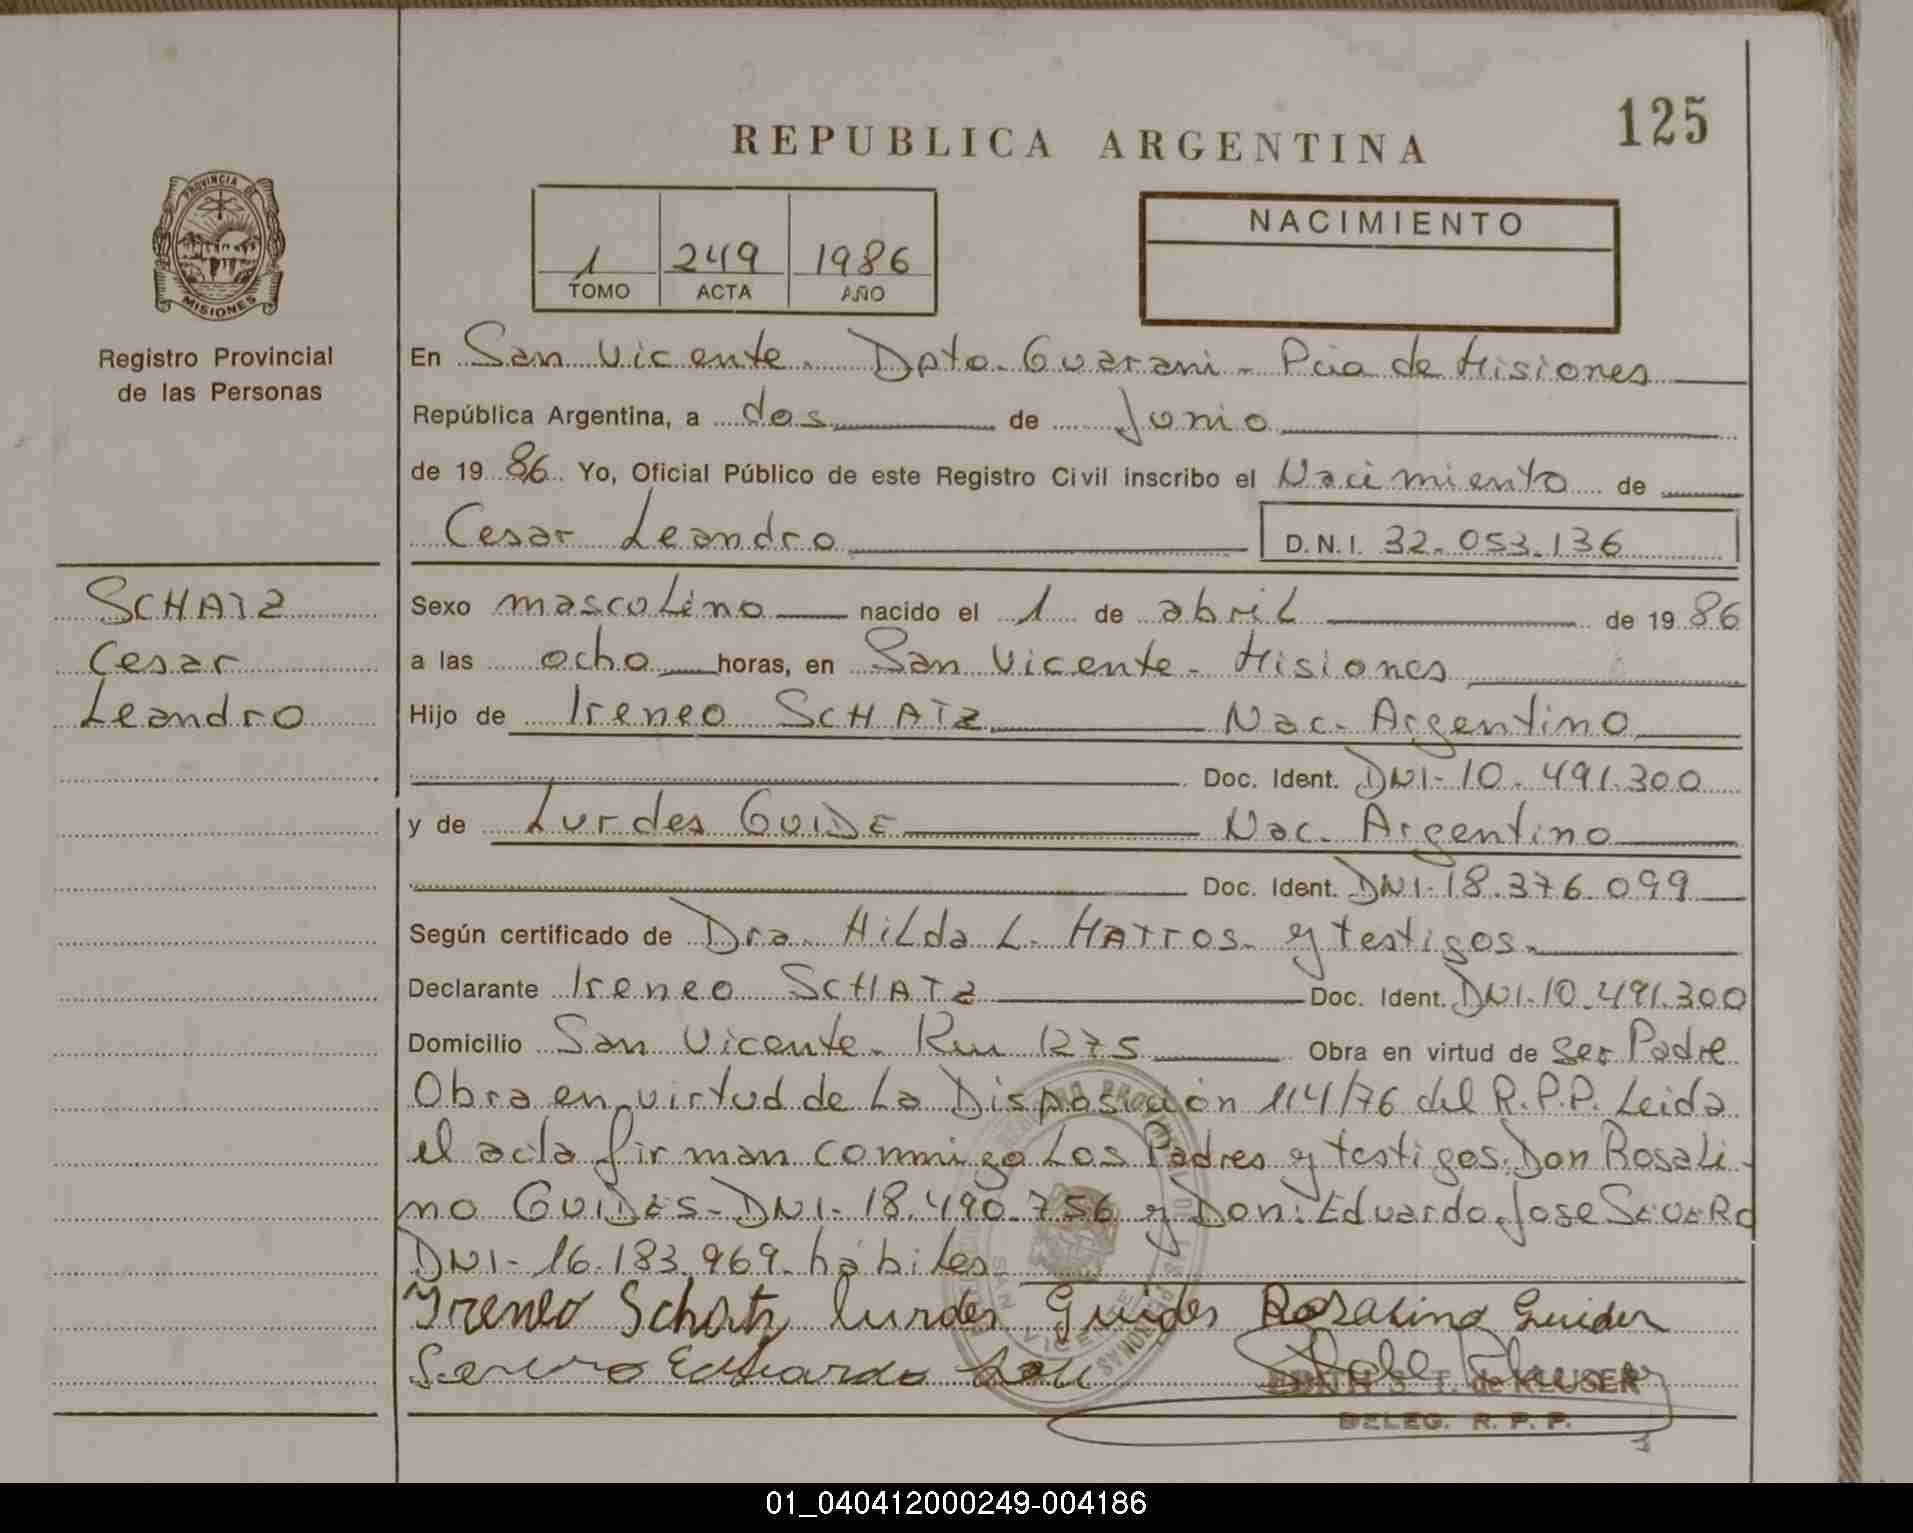 125
REPUBLICA ARGENTINA
PROVINCIA DE
MISIONES
Registro Provincial
de las Personas
1 249 1986
TOMO ACTA AÑO
NACIMIENTO
En San Vicente. Dpto. Guarani - Pcia de Misiones
República Argentina, a dos de Junio
de 19 86 Yo, Oficial Público de este Registro Civil inscribo el Nacimiento de
Cesar Leandro D.N.I. 32.053.136
SCHATZ
Cesar
Leandro
Sexo mascolino nacido el 1 de abril de 19 86
a las ocho horas, en San Vicente - Misiones
Hijo de Ireneo SCHATZ Nac. Argentino
Doc. Ident. DNI-10.491.300
y de Lurdes GUIDE Nac. Argentino
Doc. Ident. DNI-18.376.099
Según certificado de Dra. Hilda L. MATTOS - y testigos.
Declarante Ireneo SCHATZ Doc. Ident. DNI-10.491.300
Domicilio San Vicente. Km 1275 Obra en virtud de ser Padre
Obra en virtud de La Disposición 114/76 del R.P.P. Leida
el acta firman conmigo Los Padres y testigos. Don Rosali-
no GUIDES - DNI-18.490.756 y Don: Eduardo Jose SEVERO
DNI-16.183.969 hábiles
Ireneo Schatz Lurdes Guides Rosalino Guides
Severo Eduardo José
T. de KLUSER
DELEG. R. P. P.
01_040412000249-004186